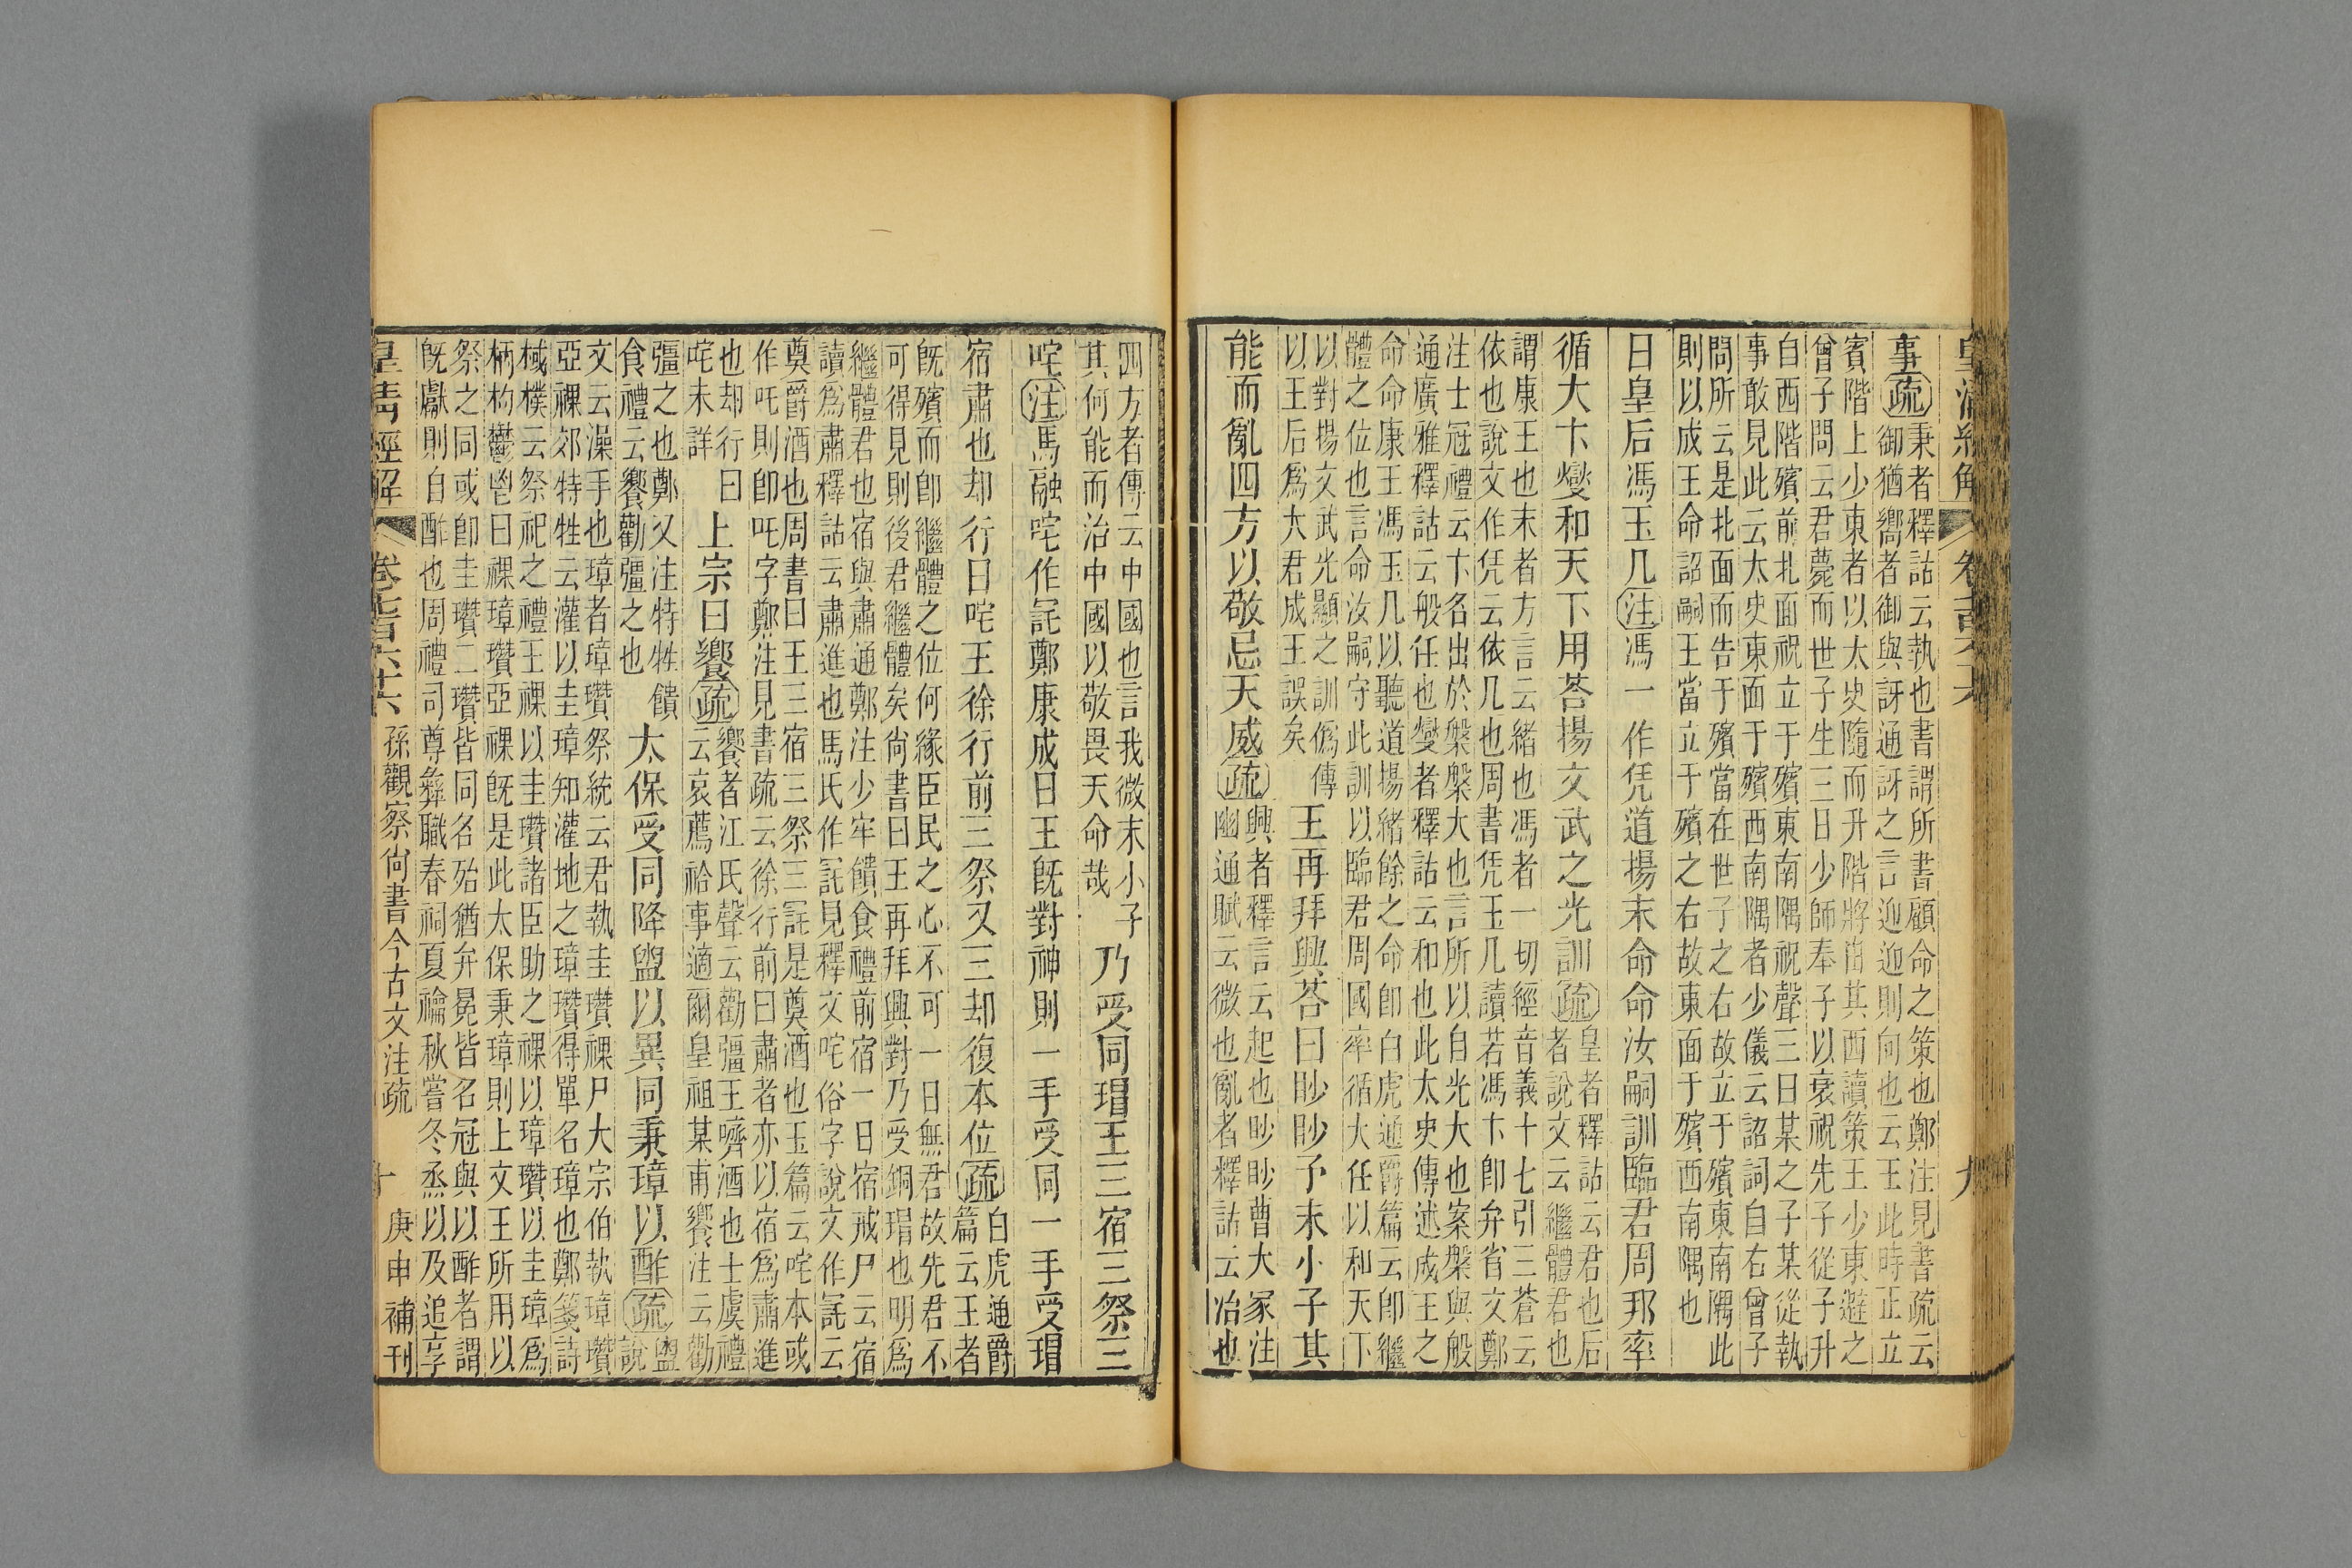 事疏
秉者釋詁云執也書謂所書顧命之策也鄭注見書疏云
御猶嚮者御與訝通訝之言迎迎則向也云王此時正立
賓階上少東者以太史隨而升階將由其西讀策王少東避之
曾子問云君薨而世子生三日少師奉子以衰祝先子從子升
自西階殯前北面祝立于殯東南隅祝聲三曰某之子某從執
事敢見此云太史東面于殯西南隅者少儀云詔詞自右曾子
問所云是北面而告于殯當在世子之右故立于殯東南隅此
則以成王命詔嗣王當立于殯之右故東面于殯西南隅也
曰皇后馮玉几注馮一作凭道揚末命命汝嗣訓臨君周邦率
循大卞燮和天下用荅揚文武之光訓疏
皇者釋詁云君也后
者說文云繼體君也
謂康王也末者方言云緒也馮者一切經音義十七引三蒼云
依也說文作凭云依几也周書凭玉几讀若馮卞卽弁省文鄭
注士冠禮云卞名出於槃槃大也言所以自光大也案槃與般
通廣雅釋詁云般任也燮者釋詁云和也此太史傳述成王之
命命康王馮玉几以聽道揚緒餘之命卽白虎通爵篇云卽繼
體之位也言命汝嗣守此訓以臨君周國率循大任以和天下
以對揚文武光顯之訓僞傳
以王后爲大君成王誤矣
王再拜興荅曰眇眇予末小子其
能而亂四方以敬忌天威疏
興者釋言云起也眇眇曹大家注
幽通賦云微也亂者釋詁云治也
四方者傳云中國也言我微末小子
其何能而治中國以敬畏天命哉
乃受同瑁王三宿三祭三
咤注馬融咤作詫鄭康成曰王旣對神則一手受同一手受瑁
宿肅也却行曰咤王徐行前三祭又三却復本位疏
白虎通爵
篇云王者
旣殯而卽繼體之位何緣臣民之心不可一日無君故先君不
可得見則後君繼體矣尚書曰王再拜興對乃受銅瑁也明爲
繼體君也宿與肅通鄭注少牢饋食禮前宿一日宿戒尸云宿
讀爲肅釋詁云肅進也馬氏作詫見釋文咤俗字說文作詫云
奠爵酒也周書曰王三宿三祭三詫是奠酒也玉篇云咤本或
作吒則卽吒字鄭注見書疏云徐行前曰肅者亦以宿爲肅進
也却行曰
咤未詳
上宗曰饗疏
饗者江氏聲云勸彊王嚌酒也士虞禮
云哀薦祫事適爾皇祖某甫饗注云勸
彊之也鄭又注特牲饋
食禮云饗勸彊之也
太保受同降盥以異同秉璋以酢疏
盥
說
文云澡手也璋者璋瓚祭統云君執圭瓚祼尸大宗伯執璋瓚
亞祼郊特牲云灌以圭璋知灌地之璋瓚得單名璋也鄭箋詩
棫樸云祭祀之禮王祼以圭瓚諸臣助之祼以璋瓚以圭璋爲
柄杓鬱鬯曰祼璋瓚亞祼旣是此太保秉璋則上文王所用以
祭之同或卽圭瓚二瓚皆同名殆猶弁冕皆名冠與以酢者謂
旣獻則自酢也周禮司尊彝職春祠夏禴秋嘗冬烝以及追享
皇清經解 卷七百六十六 孫觀察尚書今古文注疏 十 庚申補刊